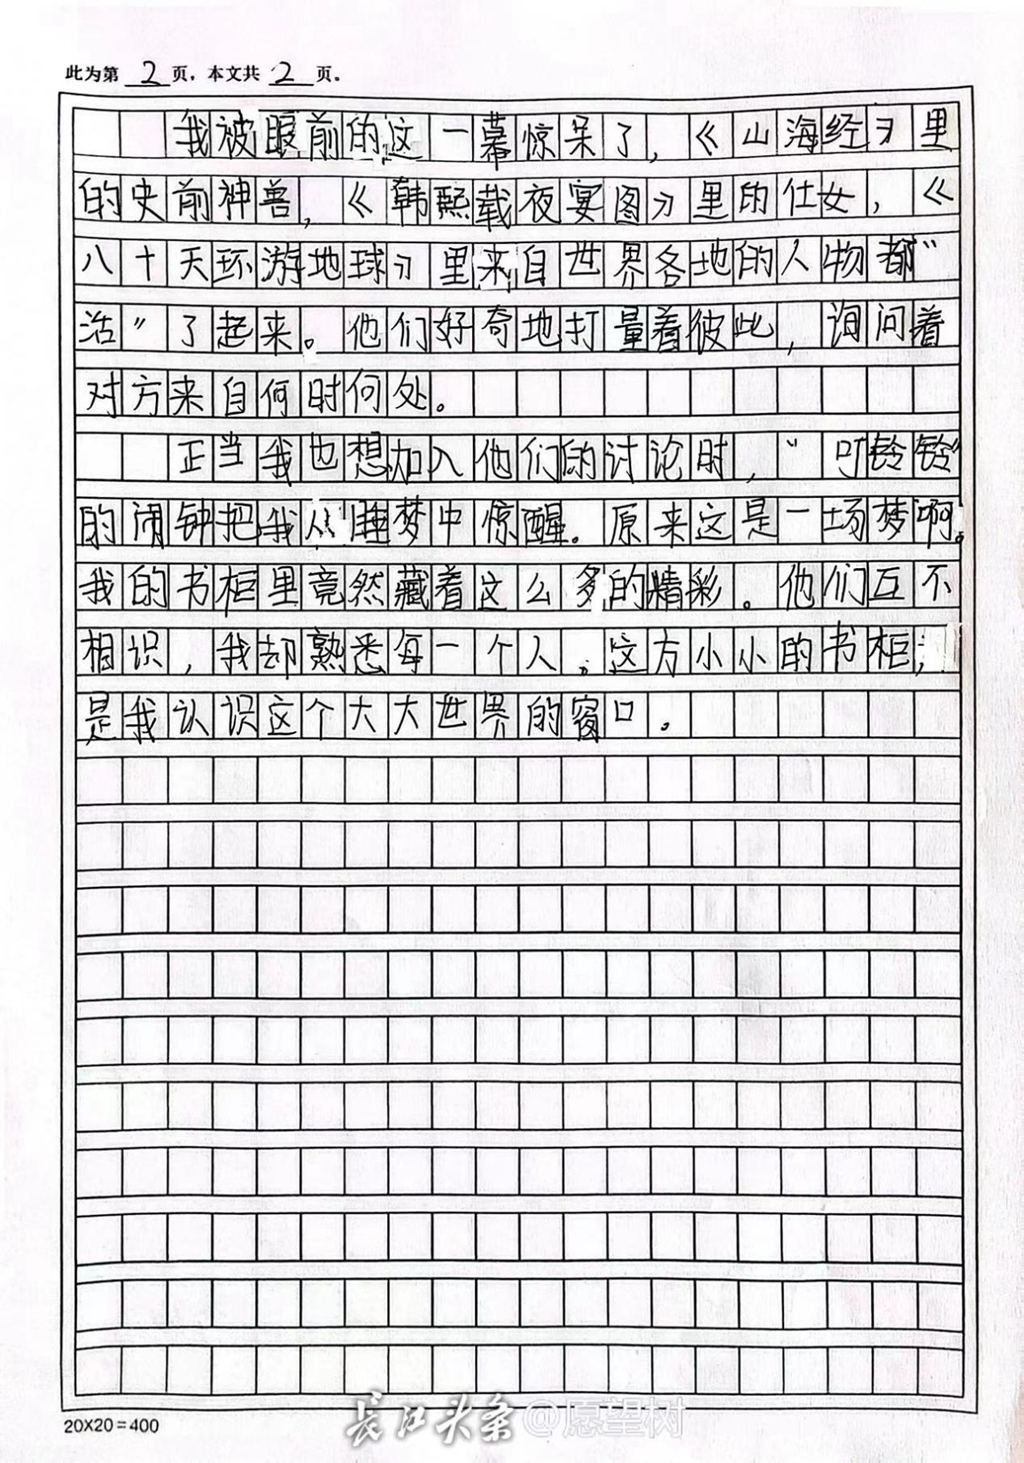 此为第 2 页，本文共 2 页。
我被眼前的这一幕惊呆了，《山海经》里
的史前神兽，《韩熙载夜宴图》里的仕女，《
八十天环游地球》里来自世界各地的人物都“
活”了起来。他们好奇地打量着彼此，询问着
对方来自何时何处。
正当我也想加入他们的讨论时，“叮铃铃”
的闹钟把我从睡梦中惊醒。原来这是一场梦啊。
我的书柜里竟然藏着这么多的精彩。他们互不
相识，我却熟悉每一个人。这方小小的书柜；
是我认识这个大大世界的窗口。
20X20=400
长江头条@愿望树